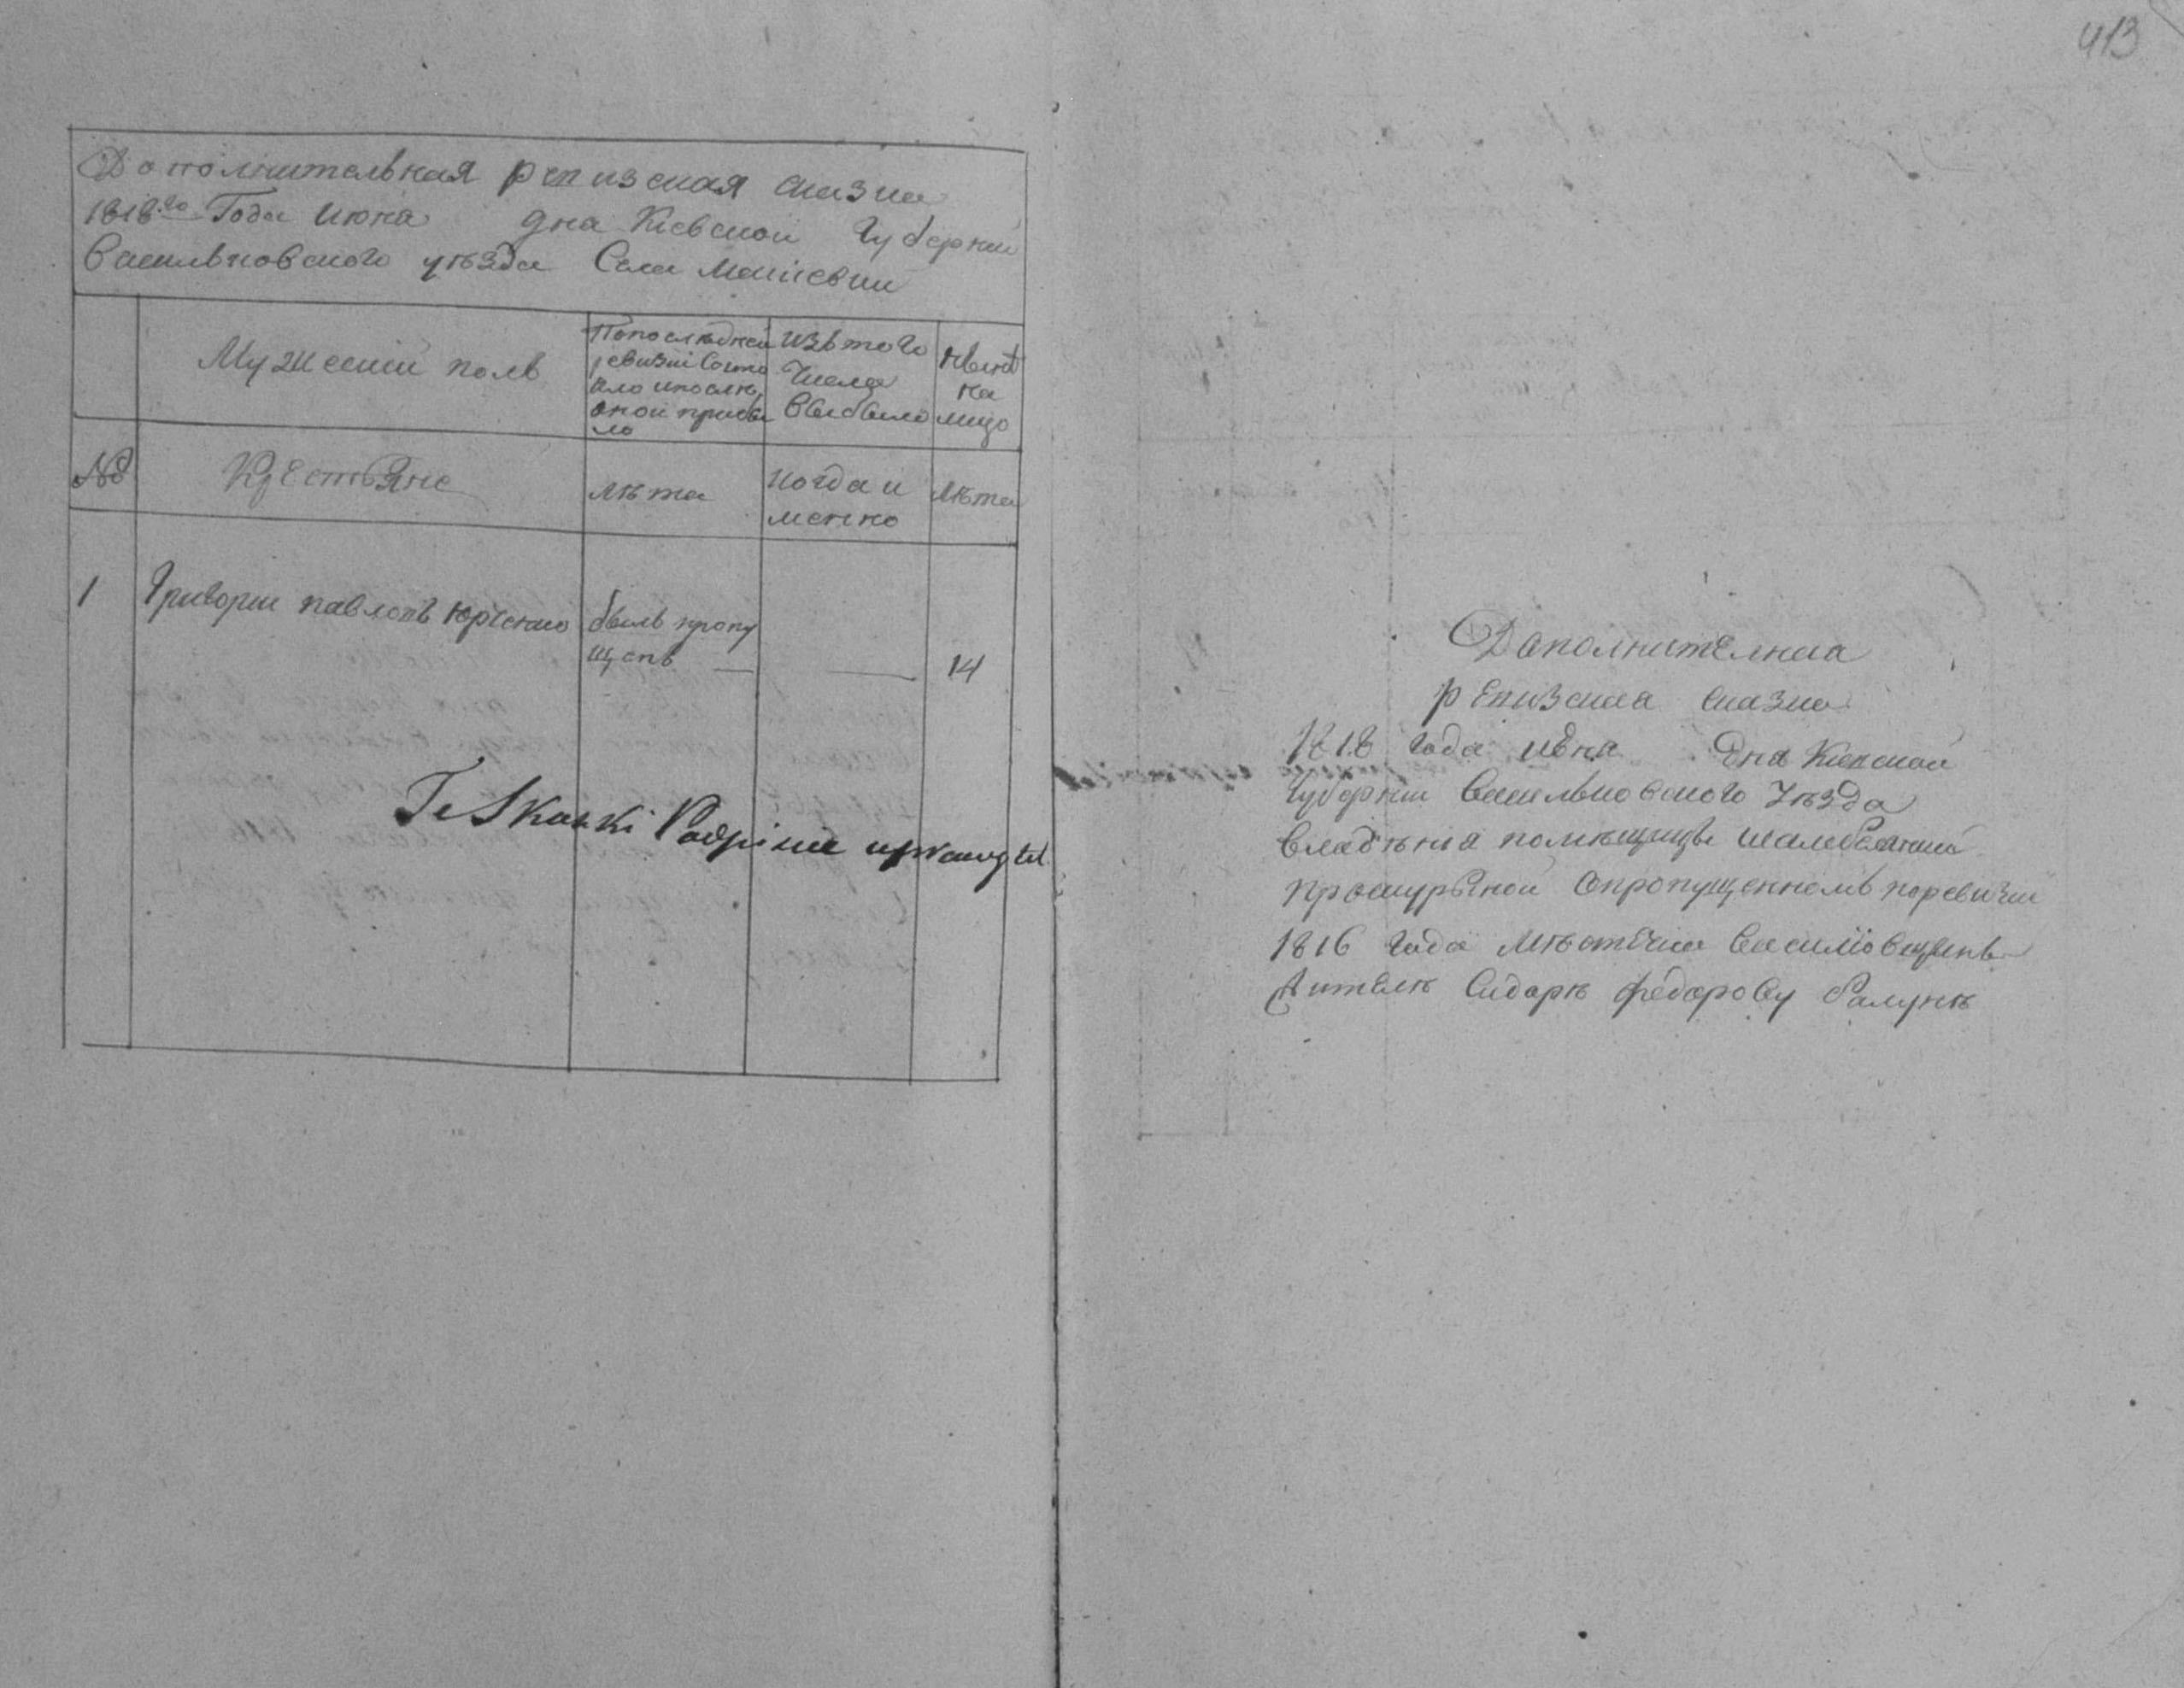 413
Дополнительная ревизская сказка
1818:го Года июня дня Киевской Губернии
Васильковского уѣзда Села
Мужеский полъ
Попослѣдней
ревизии Состо
яло ипослѣ
оной прибы
ло
Изъ того
Числа
Выбыло
Нынѣ
на
лицо
№
Крестьяне
лѣта
Когда и
менно
Лѣта
1
Григории павловъ
былъ пропу
щенъ —
—
14
Дополнителная
ревизская сказка
1818 года июня дня Киевской
Губернии Васильковского Уѣзда
Владѣния помѣщицы
опропущенномъ поревизии
1816 года Мѣстечка
Жителѣ Сидорѣ федорову